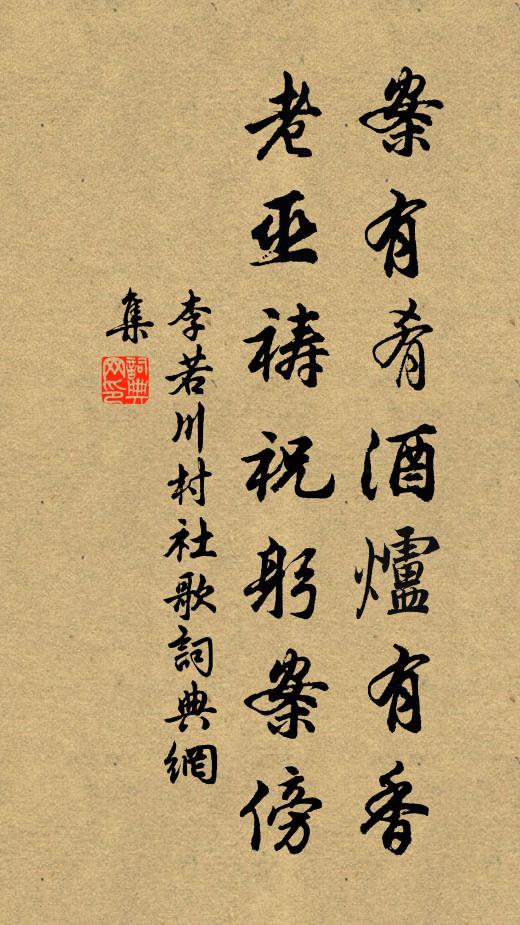 案有肴酒爐有香
老巫禱祝躬案傍
李若川村社歌詞典網
集
詞典網印